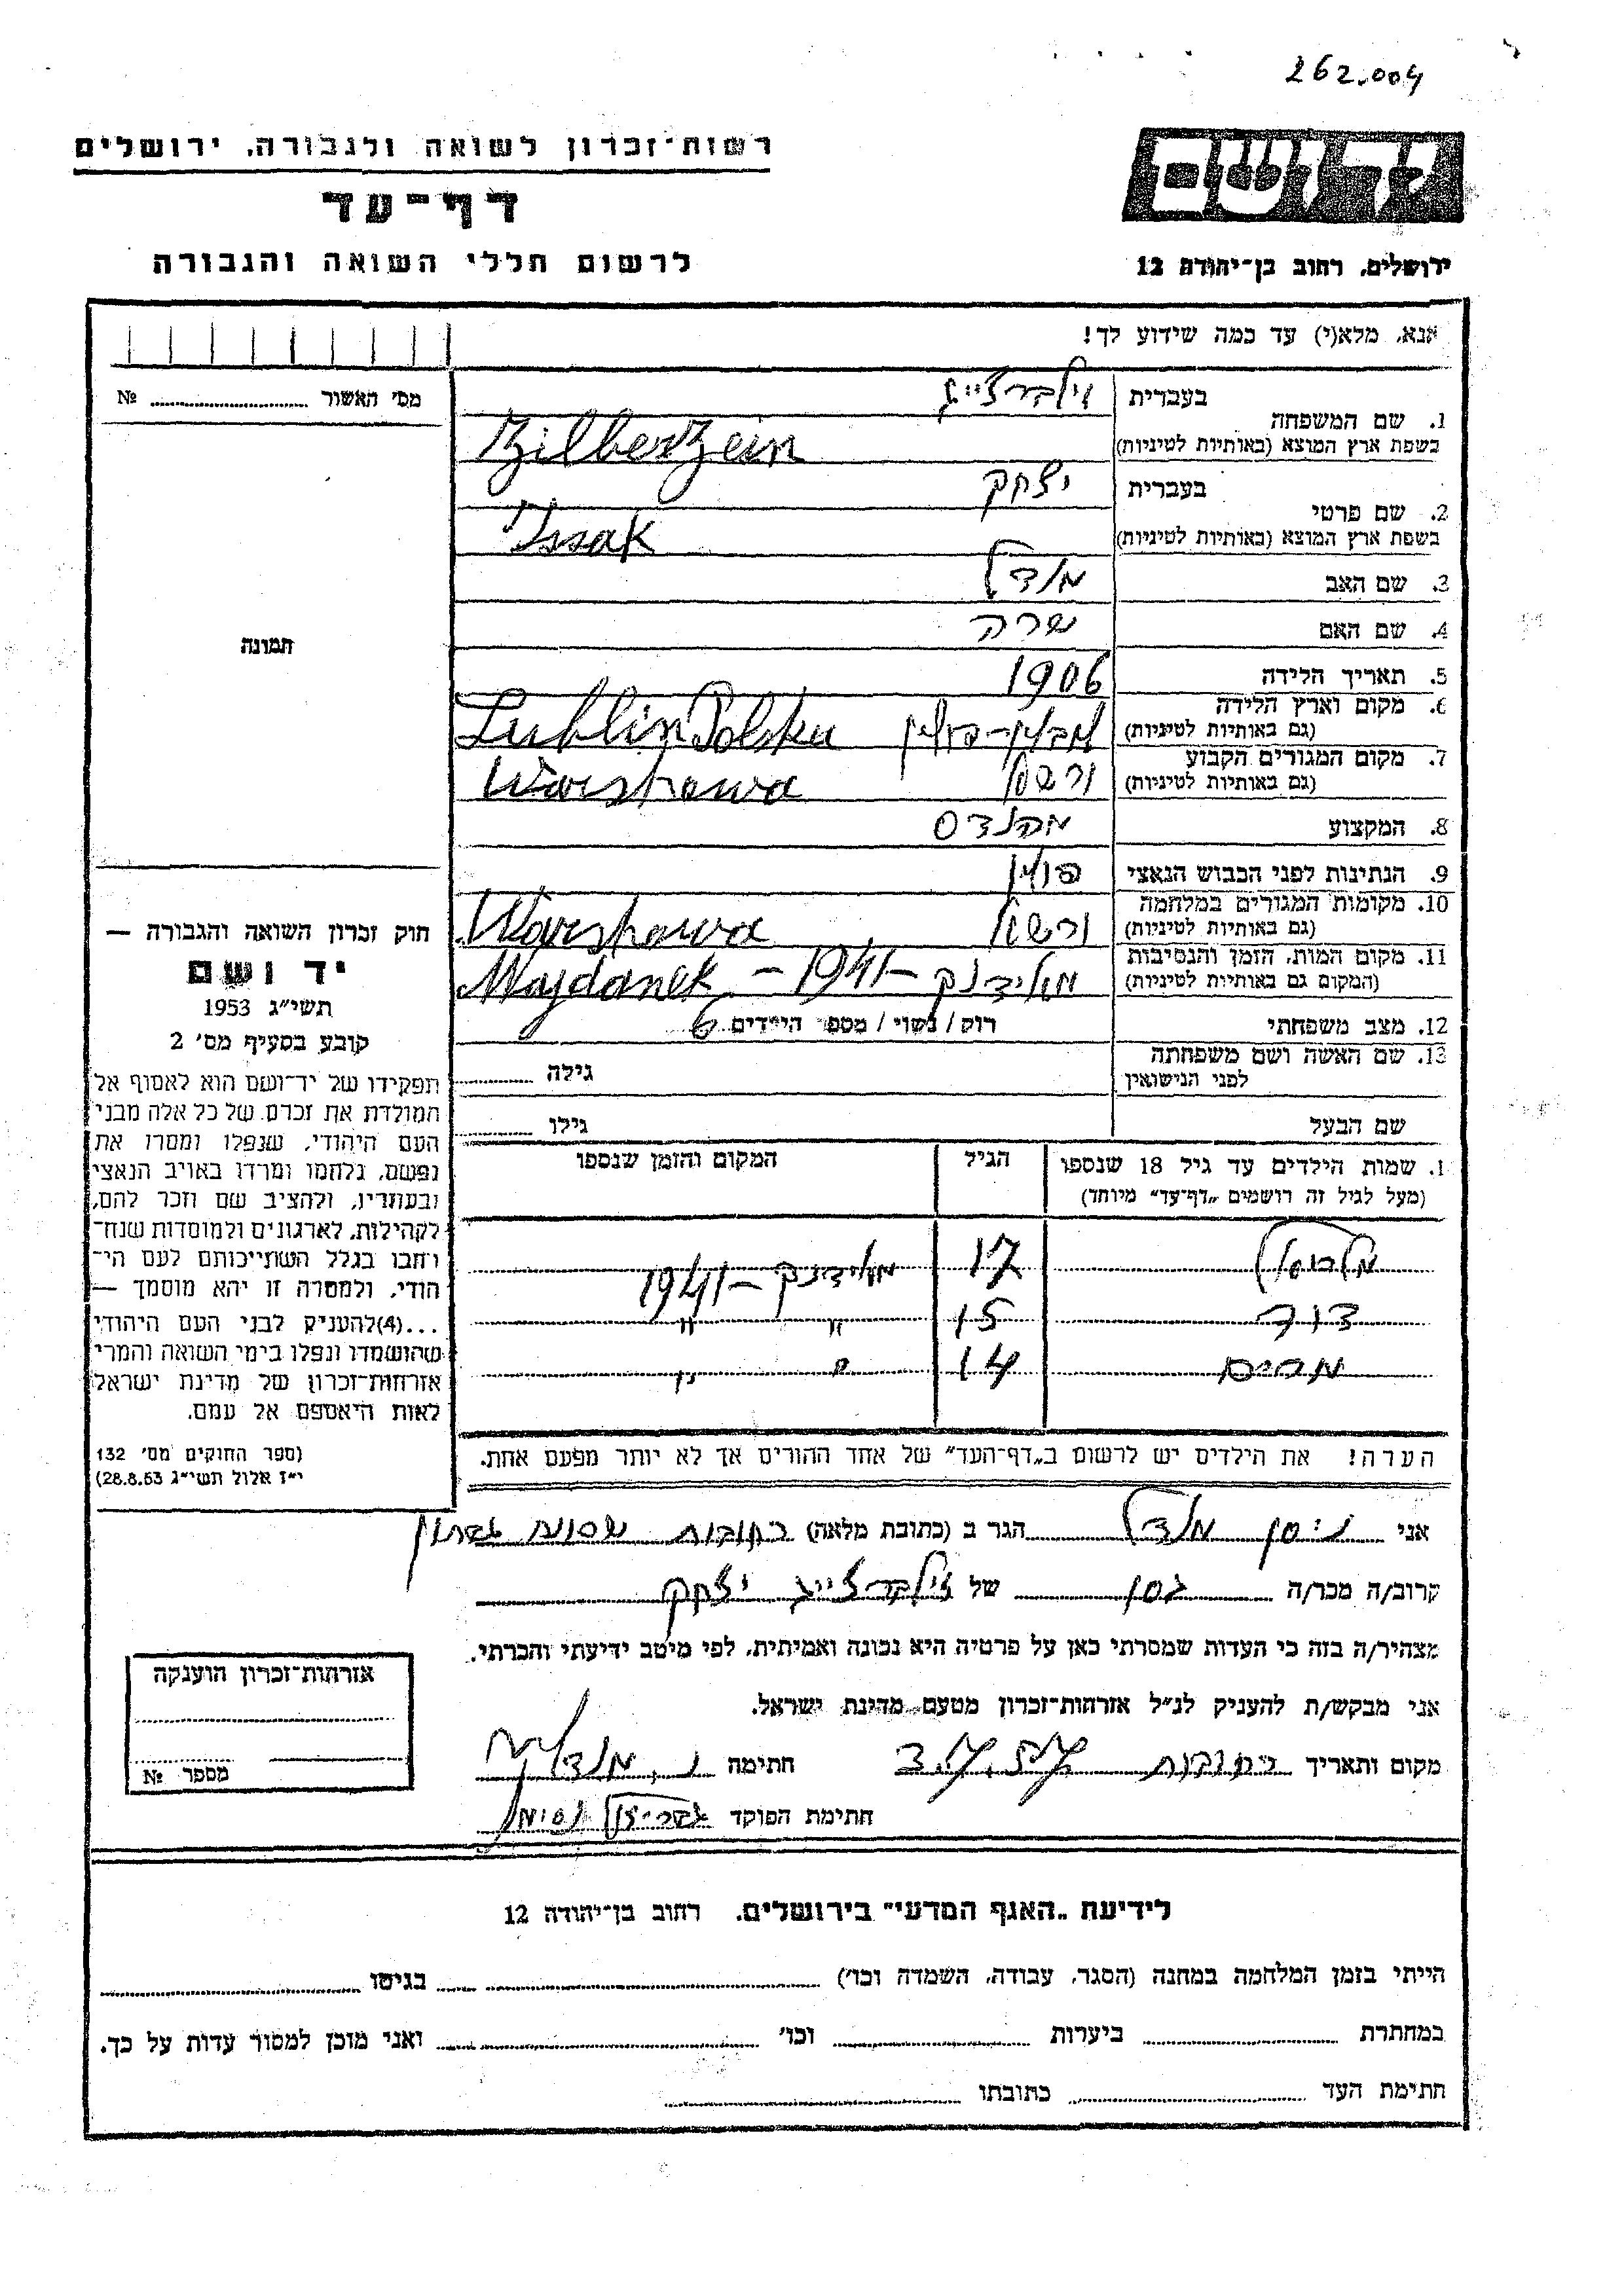 262.004
רשות־זכרון לשואה ולגבורה, ירושלים
דף־עד
לרשום חללי השואה והגבורה
יד ושם
ירושלים, רחוב בן־יהודה 12
אנא, מלא(י) עד כמה שידוע לך!
מס׳ האשור № 
תמונה
1. שם המשפחה
בעברית זילברצייג
בשפת ארץ המוצא (באותיות לטיניות) Zilberzein
2. שם פרטי
בעברית יצחק
בשפת ארץ המוצא (באותיות לטיניות) Issak
3. שם האב מנדל
4. שם האם שרה
5. תאריך הלידה 1906
6. מקום וארץ הלידה
(גם באותיות לטיניות) לובלין-פולין Lublin Polska
7. מקום המגורים הקבוע
(גם באותיות לטיניות) ורשה Warshawa
8. המקצוע מהנדס
9. הנתינות לפני הכבוש הנאצי פולין
10. מקומות המגורים במלחמה
(גם באותיות לטיניות) ורשה Warshawa
11. מקום המות, הזמן והנסיבות
(המקום גם באותיות לטיניות) מאידנק -1941- Majdanek
12. מצב משפחתי רוק / נשוי / מספר הילדים 6
13. שם האשה ושם משפחתה
לפני הנישואין גילה
שם הבעל גילו
1. שמות הילדים עד גיל 18 שנספו הגיל המקום והזמן שנספו
(מעל לגיל זה רושמים „דף־עד״ מיוחד)
17 מאידנק -1941
דוד 15 " "
מרים 14 " "
הערה! את הילדים יש לרשום ב„דף־העד״ של אחד ההורים אך לא יותר מפעם אחת.
חוק זכרון השואה והגבורה —
יד ושם
תשי״ג 1953
קובע בסעיף מס׳ 2
תפקידו של יד־ושם הוא לאסוף אל
המולדת את זכרם של כל אלה מבני
העם היהודי, שנפלו ומסרו את
נפשם, נלחמו ומרדו באויב הנאצי
ובעוזריו, ולהציב שם וזכר להם,
לקהילות, לארגונים ולמוסדות שנח־
רבו בגלל השתייכותם לעם הי־
הודי, ולמטרה זו יהא מוסמך —
...(4) להעניק לבני העם היהודי
שהושמדו ונפלו בימי השואה והמרי
אזרחות־זכרון של מדינת ישראל
לאות היאספם אל עמם.
(ספר החוקים מס׳ 132
י״ז אלול תשי״ג 28.8.53)
אני ניסן מנדל הגר ב (כתובת מלאה) רחובות
קרוב/ה מכר/ה גיסו של זילברצייג יצחק
מצהיר/ה בזה כי העדות שמסרתי כאן על פרטיה היא נכונה ואמיתית, לפי מיטב ידיעתי והכרתי.
אני מבקש/ת להעניק לנ״ל אזרחות־זכרון מטעם מדינת ישראל.
מקום ותאריך רחובות חתימה
חתימת הפוקד
אזרחות־זכרון הוענקה
מספר №
לידיעת „האגף המדעי״ בירושלים, רחוב בן־יהודה 12
הייתי בזמן המלחמה במחנה (הסגר, עבודה, השמדה וכו׳) בגיטו
במחתרת ביערות וכו׳ ואני מוכן למסור עדות על כך.
חתימת העד כתובתו